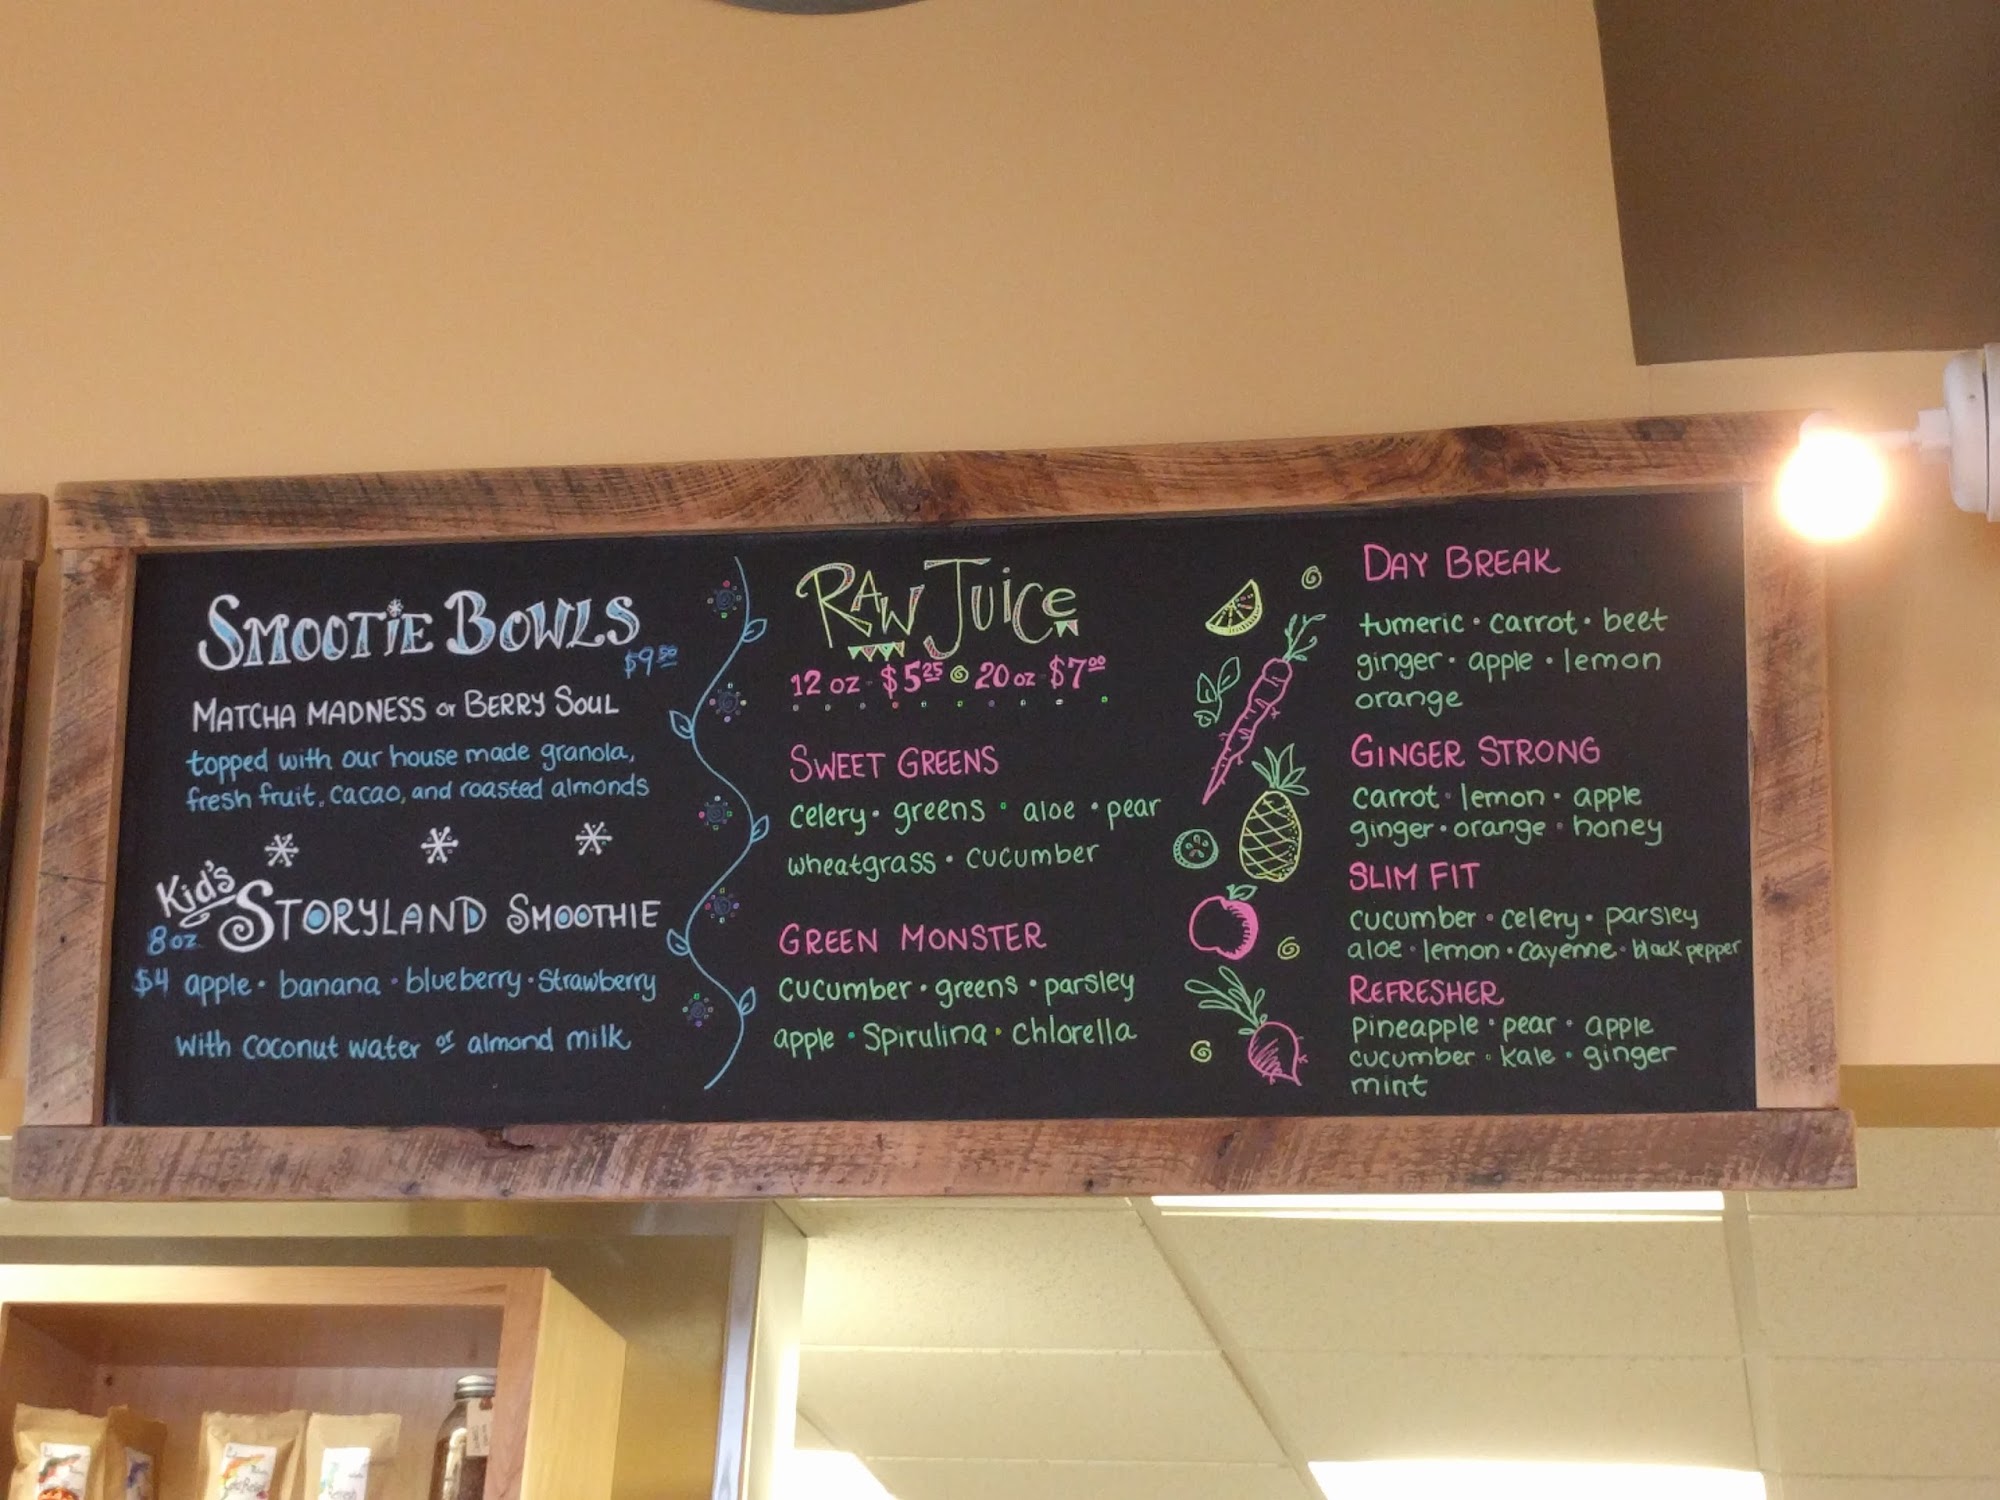 SMOOTIE BOWLS
$9.50
MATCHA MADNESS or BERRY SOUL
topped with our house made granola,
fresh fruit, cacao, and roasted almonds
Kid's
STORYLAND SMOOTHIE
8 oz
$4 apple · banana · blueberry · Strawberry
with coconut water or almond milk
RAW JUICE
12 oz - $5.25 20 oz $7.00
SWEET GREENS
celery · greens · aloe · pear
wheatgrass · cucumber
GREEN MONSTER
cucumber · greens · parsley
apple · Spirulina · Chlorella
DAY BREAK
tumeric · carrot · beet
ginger · apple · lemon
orange
GINGER STRONG
carrot · lemon · apple
ginger · orange · honey
SLIM FIT
cucumber · celery · parsley
aloe · lemon · cayenne · black pepper
REFRESHER
pineapple · pear · apple
cucumber · kale · ginger
mint